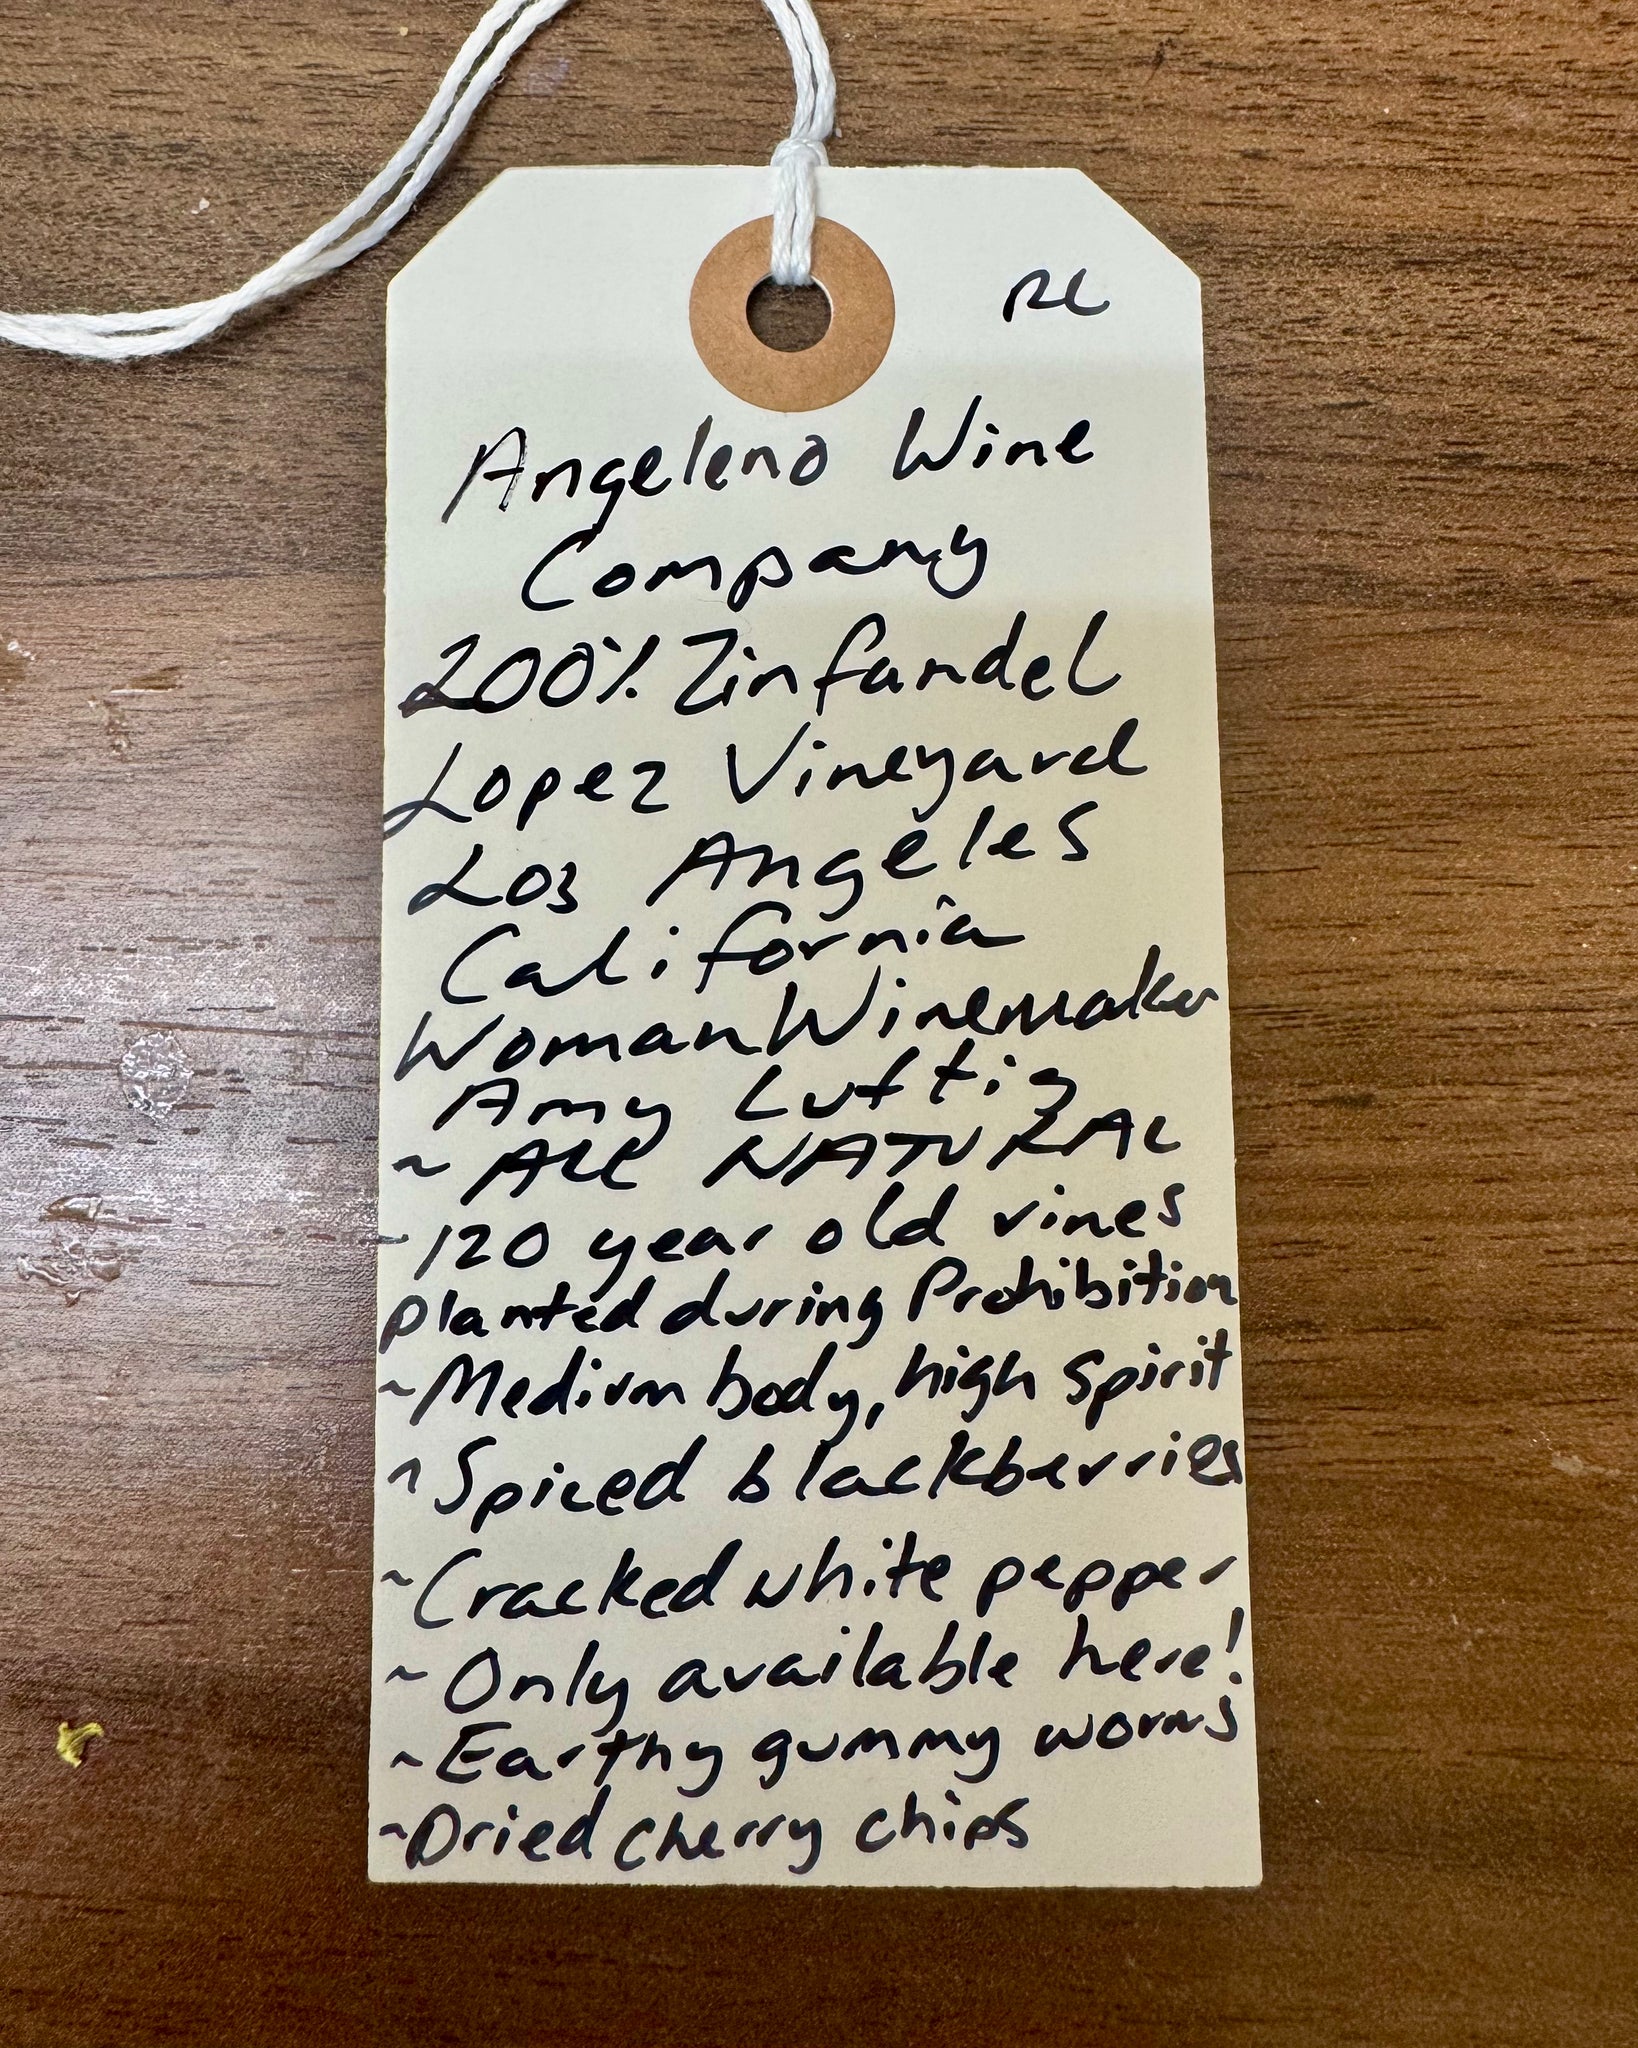 RL
Angeleno Wine
Company
200% Zinfandel
Lopez Vineyard
Los Angeles
California
Woman Winemaker
Amy Luftig
~ All NATURAL
~120 year old vines
planted during Prohibition
~Medium body, high spirit
~Spiced blackberries
~Cracked white pepper
~Only available here!
~Earthy gummy worms
~Dried cherry chips